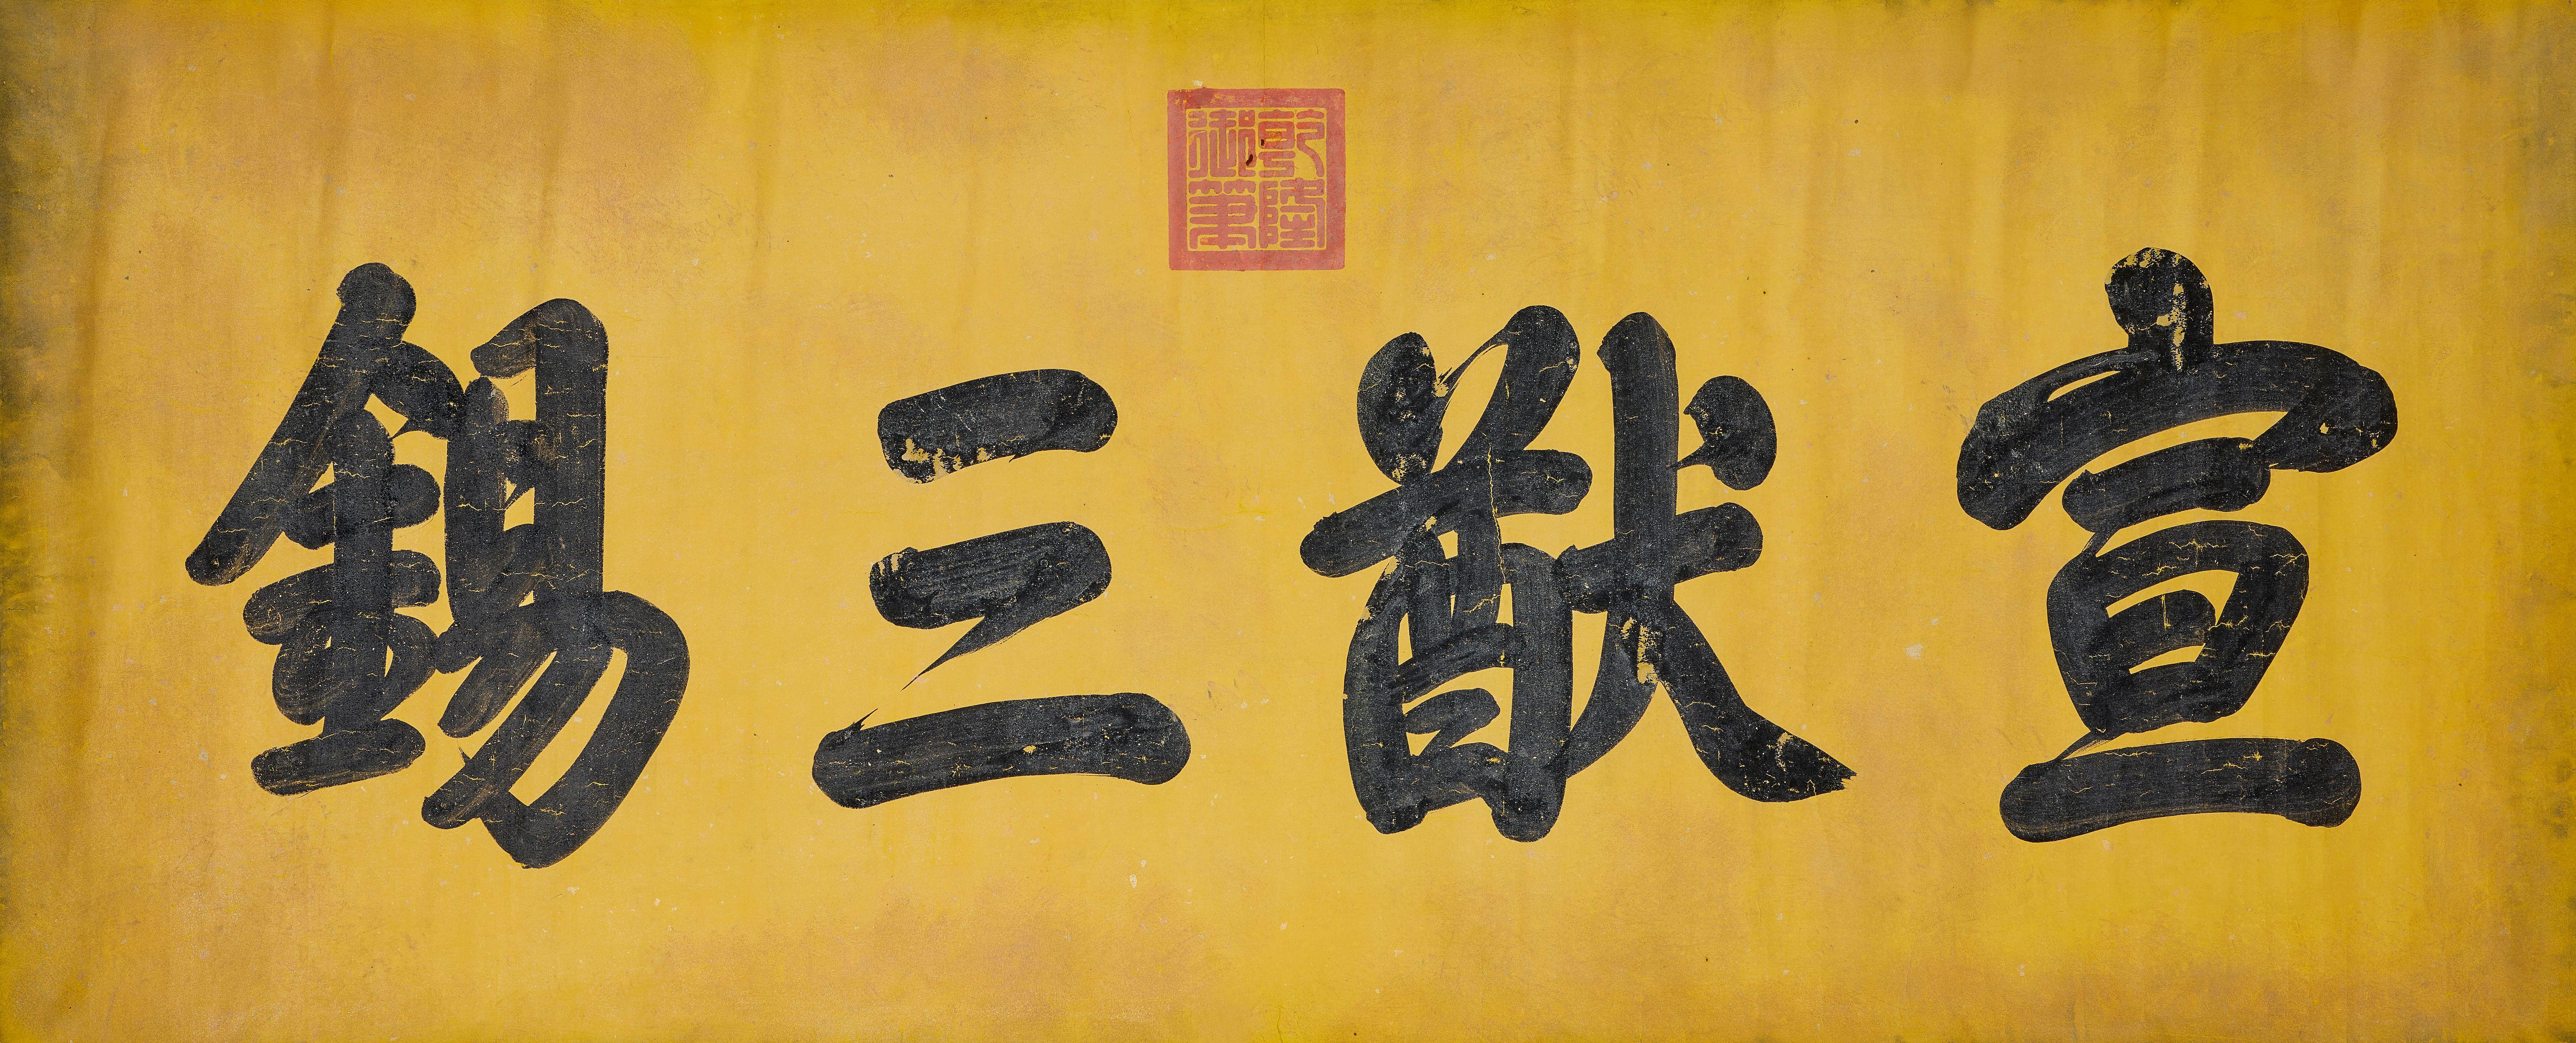 宣猷三錫
乾隆御筆